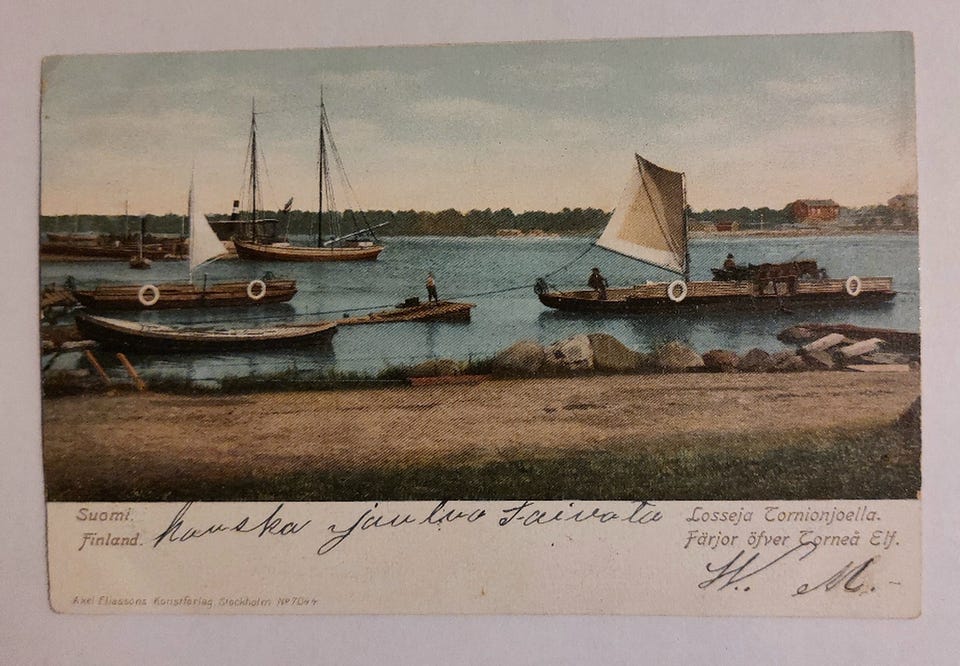 Suomi.
Finland.
hauska jouluo Toivota
Losseja Tornionjoella.
Färjor öfver Torneå Elf.
W. M.
Axel Eliassons Konstförlag, Stockholm Nº 7044